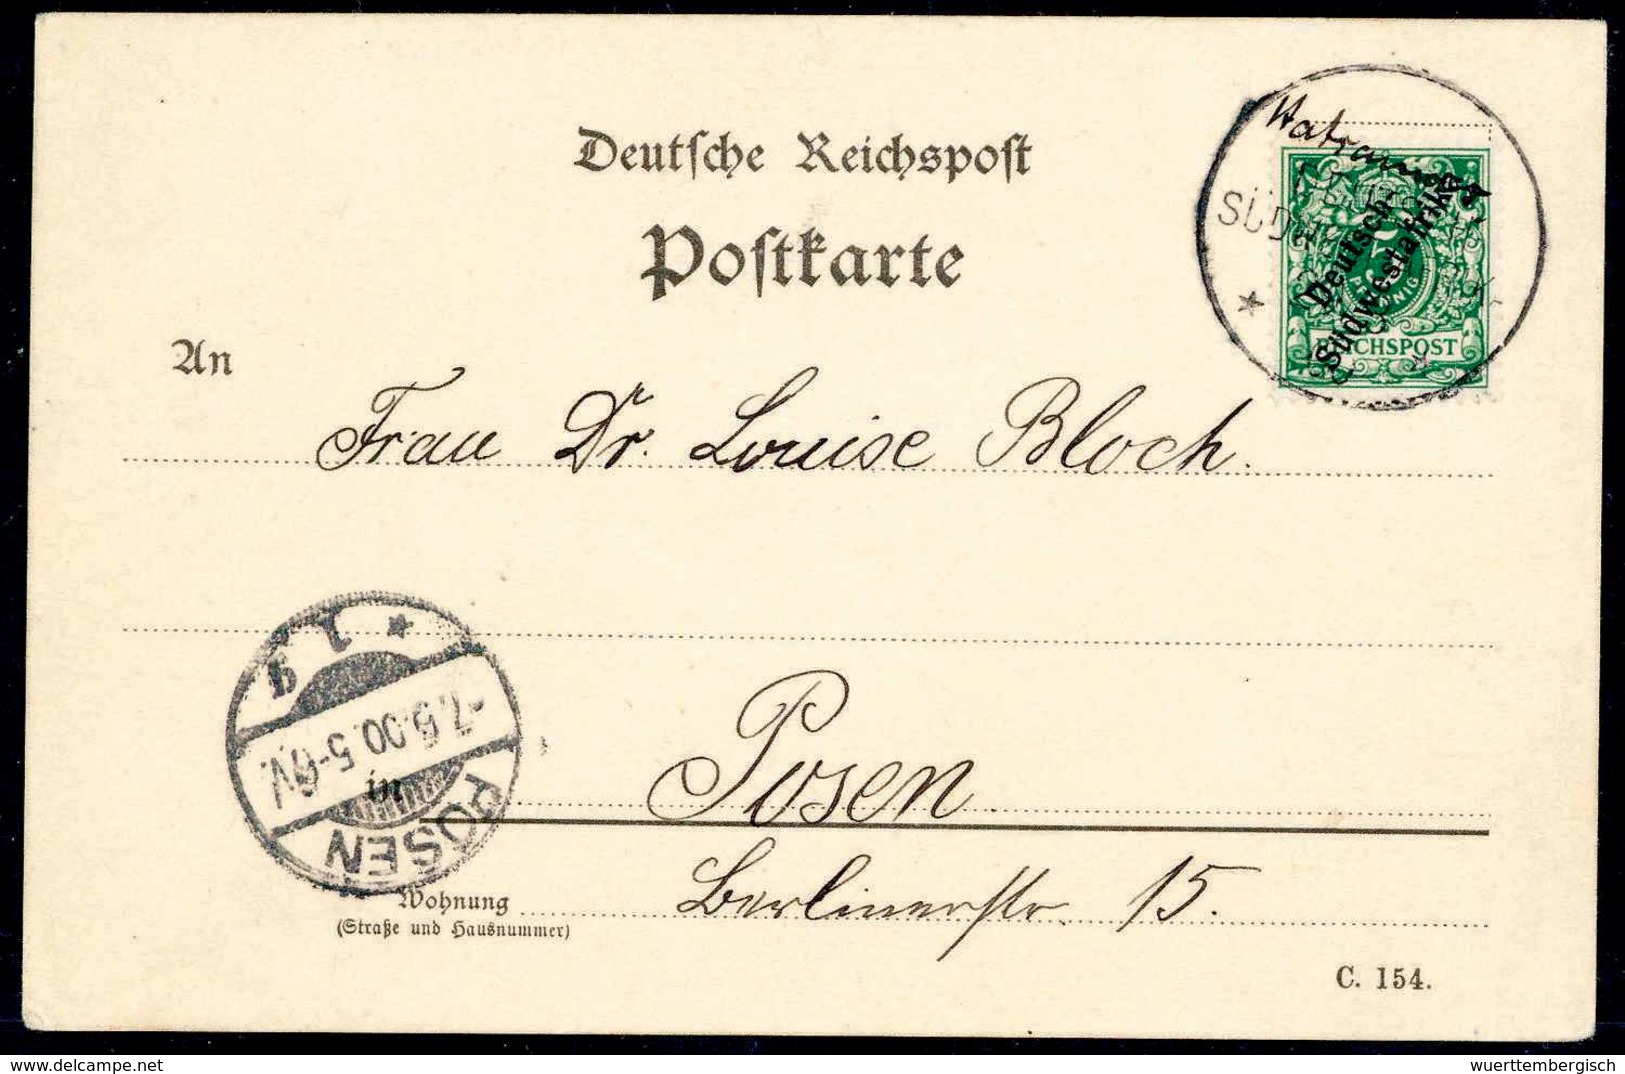 Deutsche Reichspost
Postkarte
Deutsch-
Südwestafrika
5
PFENNIG
REICHSPOST
An
Frau Dr. Louise Bloch.
POSEN
-7.5.00.5-6V.
in
Posen
Wohnung
(Straße und Hausnummer)
Berlinerstr. 15.
C. 154.
delcampe.net
wuerttembergisch